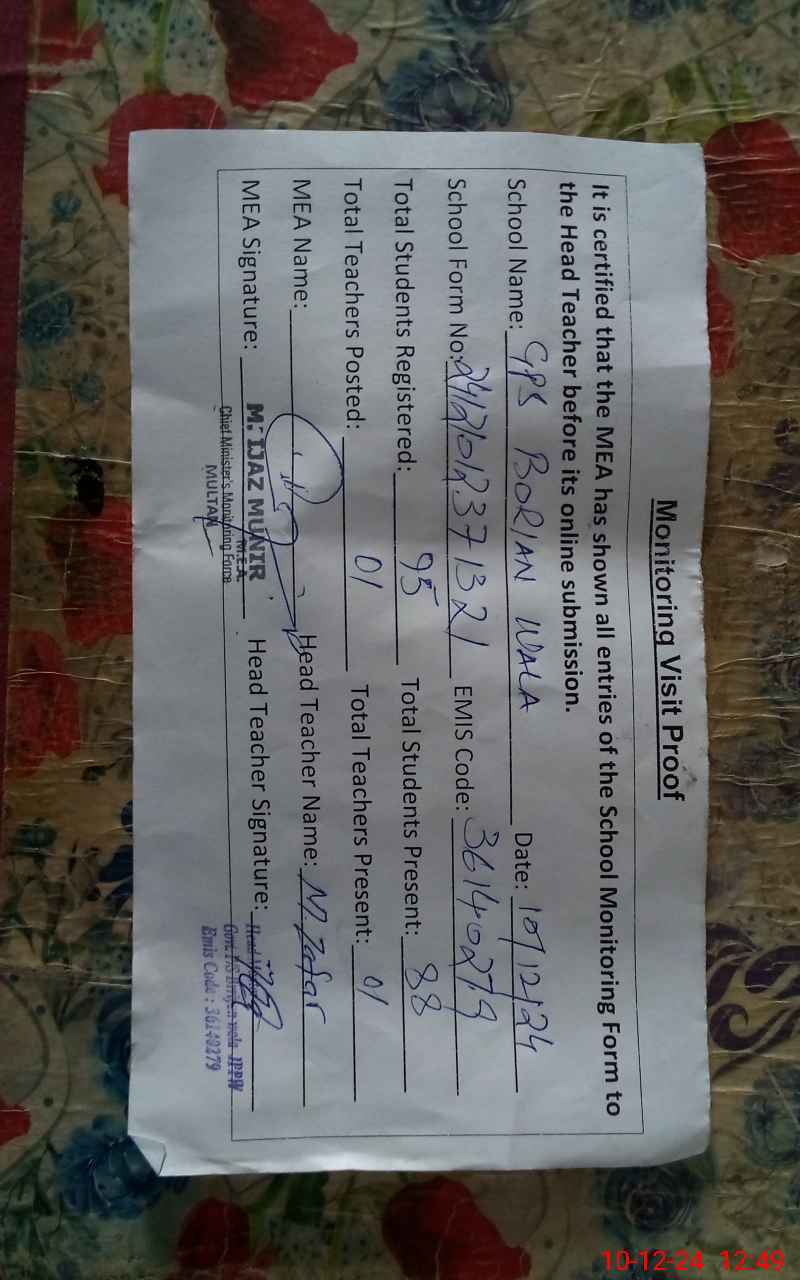 Monitoring Visit Proof
It is certified that the MEA has shown all entries of the School Monitoring Form to
the Head Teacher before its online submission.
School Name: GPS BORIAN WALA Date: 10/12/24
School Form No: 24121012371321 EMIS Code: 36140279
Total Students Registered: 95 Total Students Present: 88
Total Teachers Posted: 01 Total Teachers Present: 01
MEA Name: Head Teacher Name: M. Zafar
MEA Signature: Head Teacher Signature:
M. IJAZ MUNIR
M.E.A
Chief Minister's Monitoring Force
MULTAN
Head
wala JPPW
Emis Code : 36140279
10-12-24 12:49